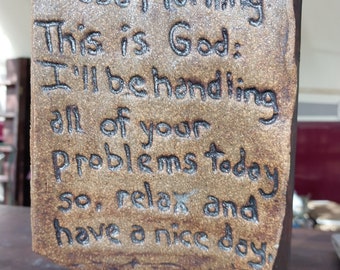 This is God:
I'll be handling
all of your
problems today
so, relax and
have a nice day.